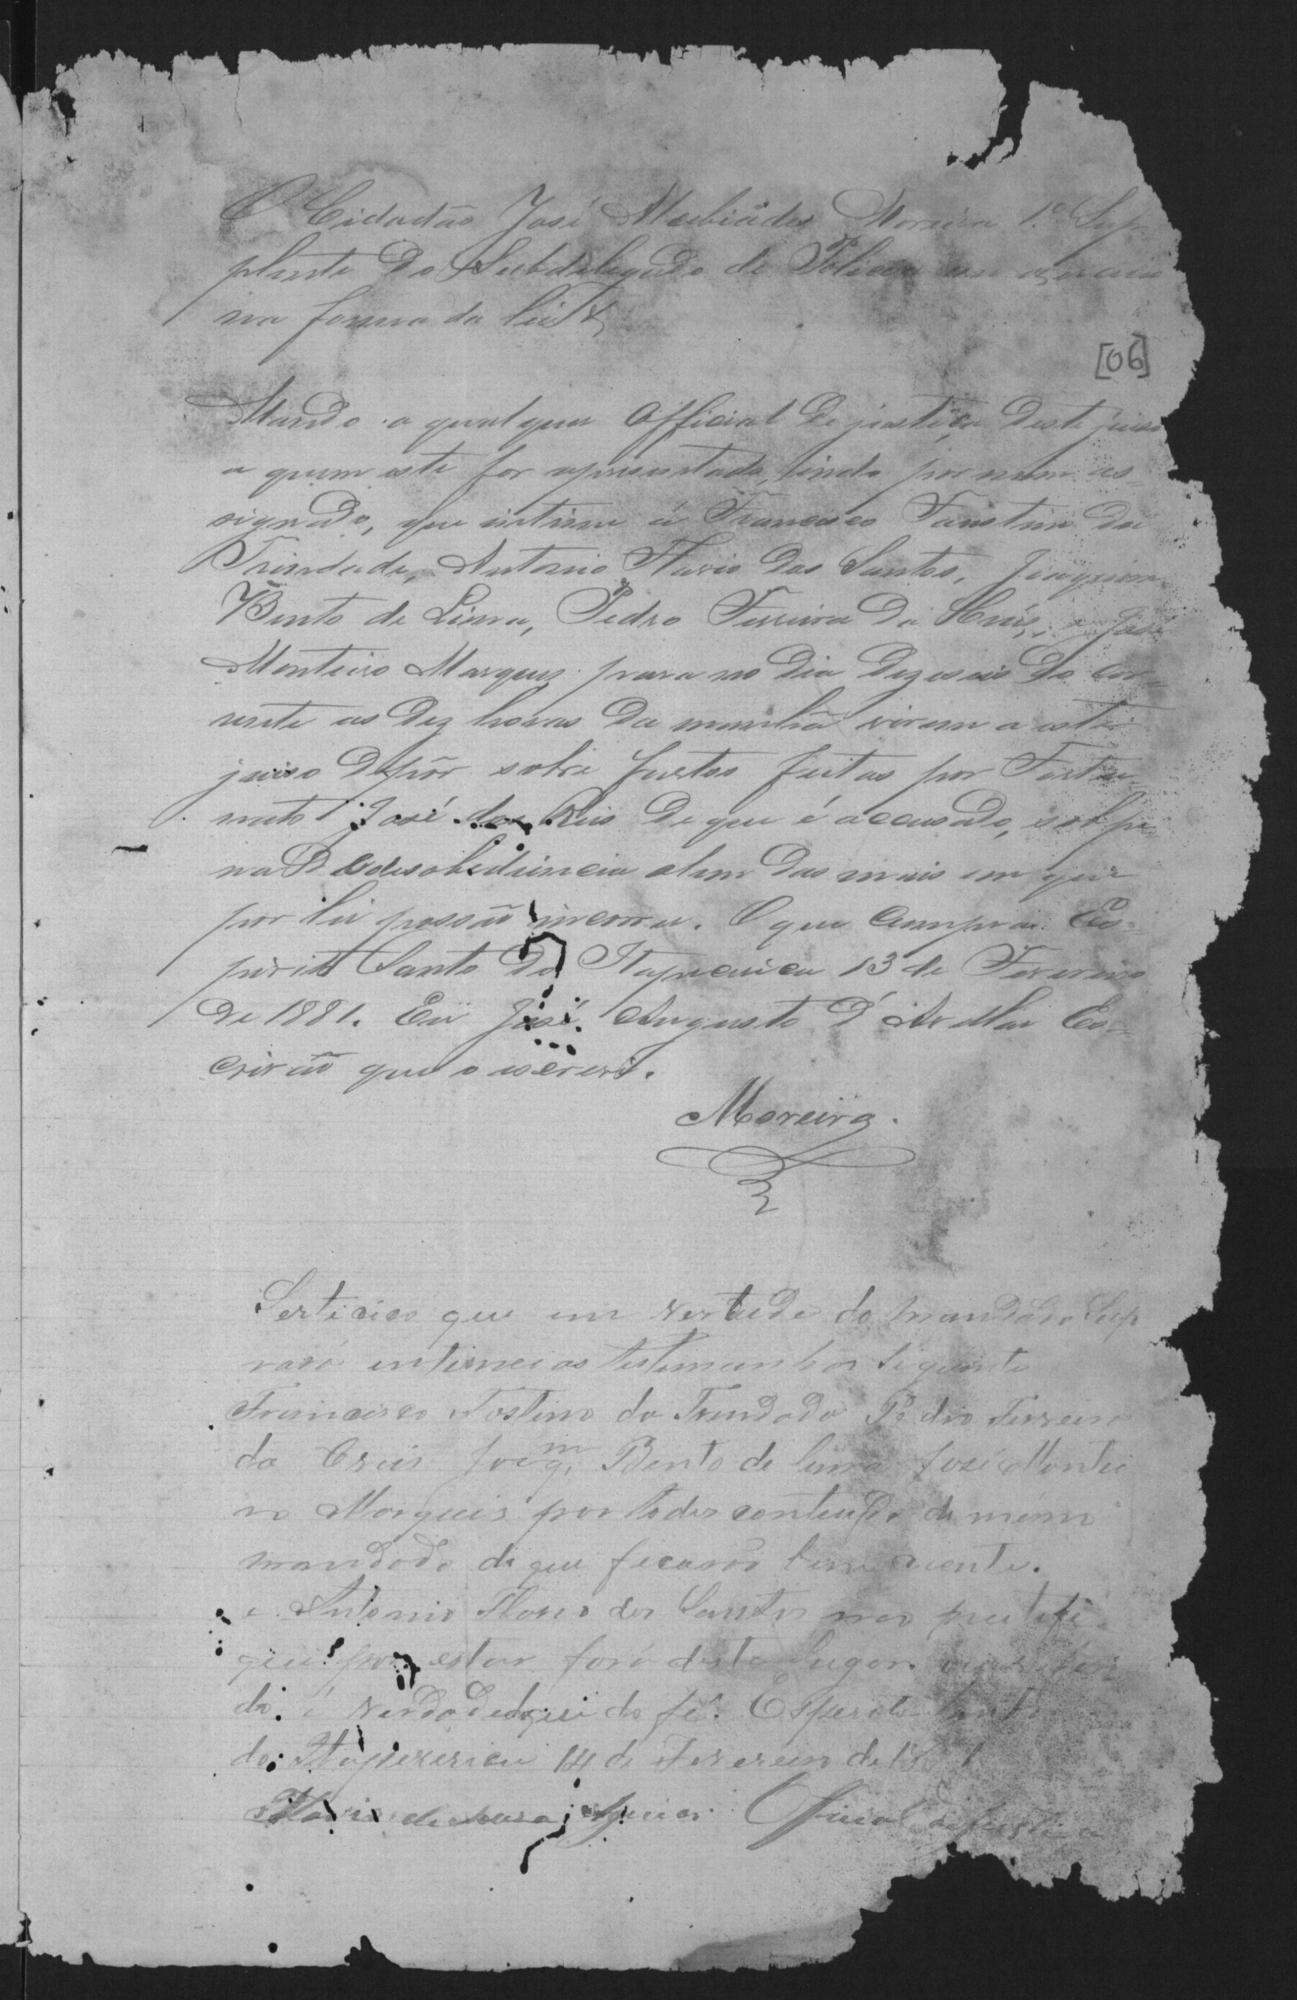 O Cidadão José Melciades Moreira 1.º Sup-
plente do Subdelegado de Policia em exercicio
na forma da lei &
[06]
Mando a qualquer Official de justiça deste juiso
a quem este for apresentado, indo por mim as-
signado, que intime á Francisco Faustino da
Trindade, Antonio Flavio dos Santos, Joaquim
Bento de Lima, Pedro Ferreira da Cruz, e José
Monteiro Marques para no dia dezeseis do cor-
rente as dez horas da manhã virem a este
juiso depôr sobre furtos feitos por Fortu-
nato José dos Reis de que é accusado, sob pe-
na de desobediencia alem das mais em que
por lei possão incorrer. O que cumpra. Es-
pirito Santo do Itapecirica 13 de Fevereiro
de 1881. Eu José Augusto d'Avellar Es-
crivão que o escrevi.
Moreira.
Sertifico que em vertude do mandado Sup
intimei as testemunhas siguente
Francisco Fostino da Trindade Pedro Ferreira
da Crus Joaq.m Bento de Lima José Montei
ro Marques por todo contiudo do mesmo
mandado de que ficarão bem ciente.
e Antonio Flavio dos Santos não
por estar fora deste lugar
do é verdade do que dou fé. Esperito Santo
do Itapecirica 14 de Fevereiro de 1881
de Sousa Official de justiça